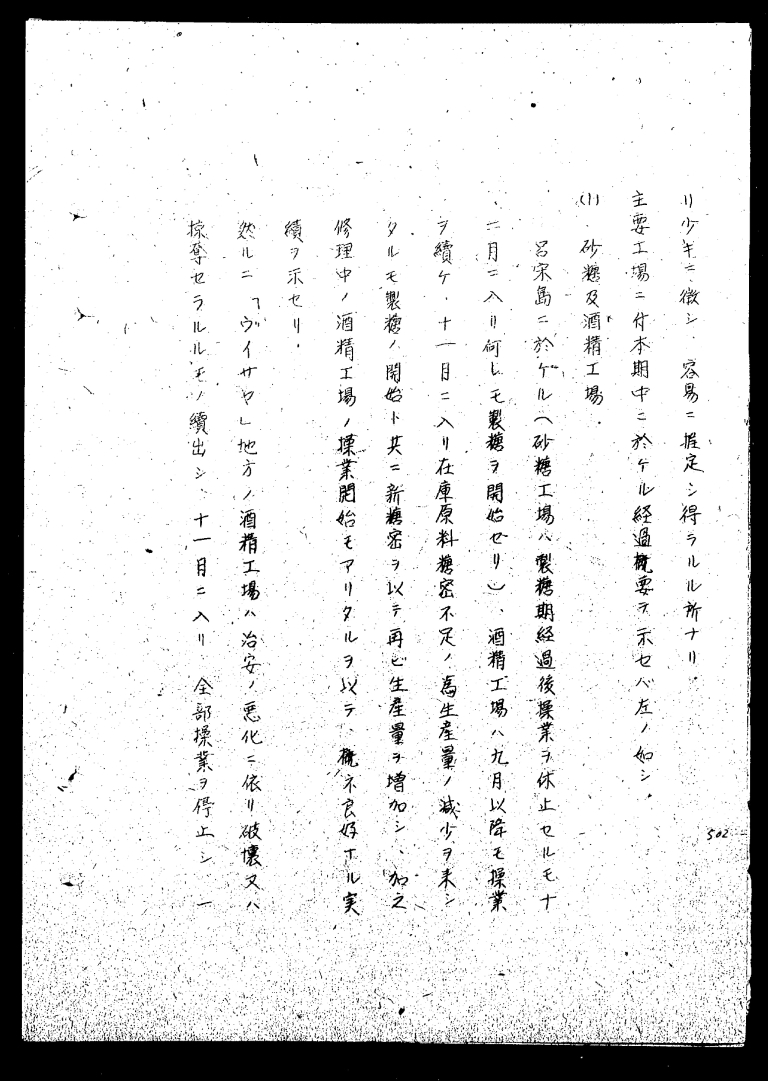 リ少キニ徴シ、容易ニ推定シ得ラルル所ナリ、
主要工場ニ付本期中ニ於ケル経過概要ヲ示セバ左ノ如シ、
(1) 砂糖及酒精工場、
呂宋島ニ於ケル(砂糖工場ハ製糖期経過後操業ヲ休止セルモ十
二月ニ入リ何レモ製糖ヲ開始セリ)、酒精工場ハ九月以降モ操業
ヲ續ケ、十一月ニ入リ在庫原料糖密不足ノ為生産量ノ減少ヲ来シ
タルモ製糖ノ開始ト共ニ新糖密ヲ以テ再ビ生産量ヲ増加シ、加之
修理中ノ酒精工場ノ操業開始モアリタルヲ以テ、概ネ良好ナル実
績ヲ示セリ、
然ルニ「ヴイサヤ」地方ノ酒精工場ハ治安ノ悪化ニ依リ破壊又ハ
掠奪セラルルモノ續出シ、十一月ニ入リ、全部操業ヲ停止シ、一
502